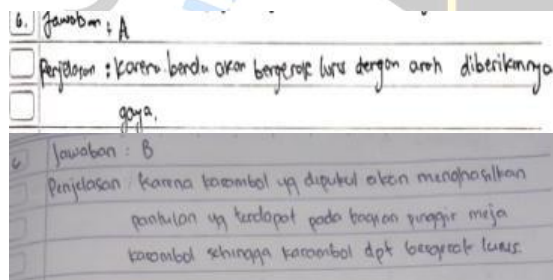 6. Jawaban : A
Penjelasan : Karena benda akan bergerak lurus dengan arah diberikannya
gaya.
6 Jawaban : B
Penjelasan : Karena karambol yg dipukul akan menghasilkan
pantulan yg terdapat pada bagian pinggir meja
karambol sehingga karambol dpt bergerak lurus.